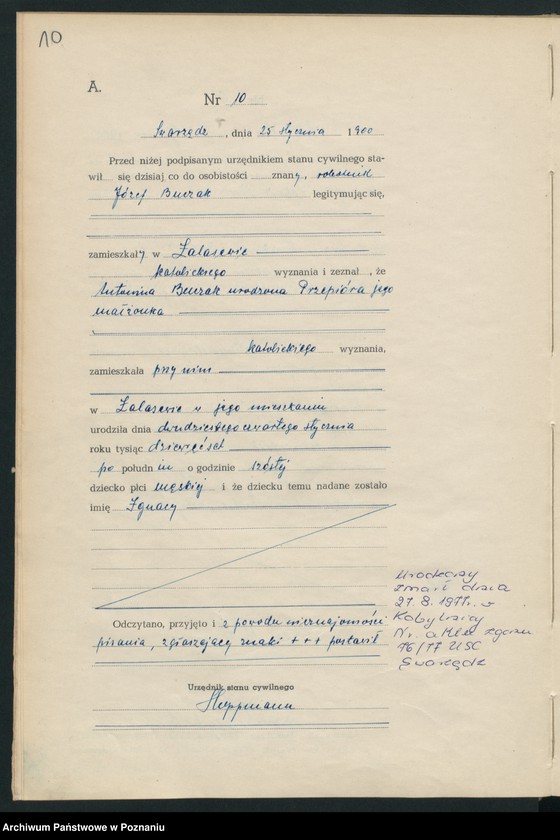 10
A.
Nr 10
Swarzędz, dnia 25 stycznia 1900
Przed niżej podpisanym urzędnikiem stanu cywilnego sta-
wił się dzisiaj, co do osobistości znany, robotnik
Józef Burzak legitymując się,
zamieszkały w Zalasewie
katolickiego wyznania i zeznał, że
Antonina Burzak urodzona Przepióra jego
małżonka
katolickiego wyznania,
zamieszkała przy nim
w Zalasewie w jego mieszkaniu
urodziła dnia dwudziestego czwartego stycznia
roku tysiąc dziewięćset
po południu o godzinie szóstej
dziecko płci męskiej i że dziecku temu nadane zostało
imię Ignacy
Odczytano, przyjęto i z powodu nieznajomości
pisania, zgłaszający znaki + + + postawił
Urodzony
zmarł dnia
27.8.1977r. w
Kobylnicy
Nr. aktu zgonu
76/77 USC
Swarzędz
Urzędnik stanu cywilnego
Heppmann
Archiwum Państwowe w Poznaniu